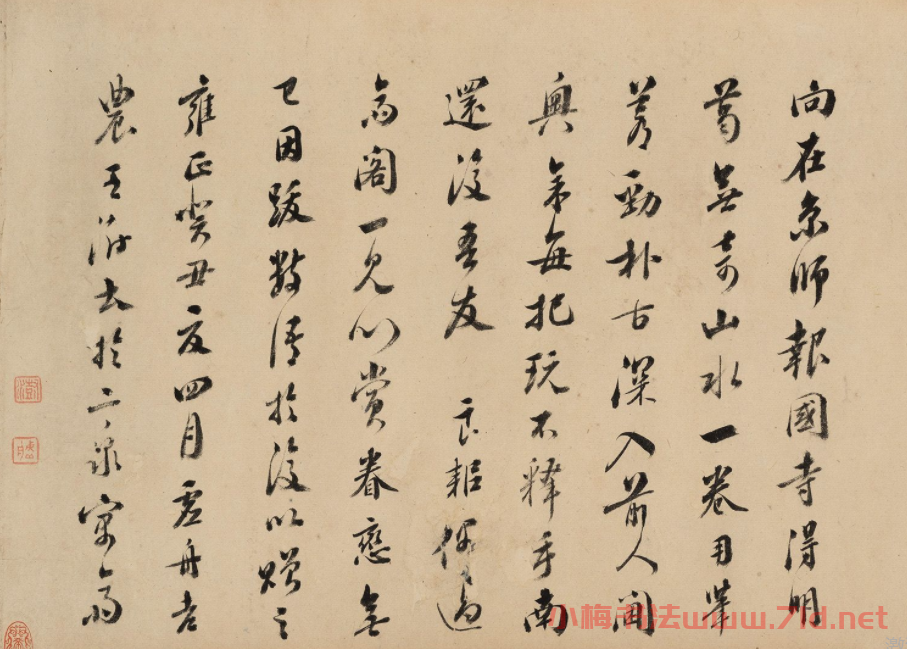 向在京師報國寺得明
葛無奇山水一卷用筆
蒼勁朴古深入前人閫
奧余每把玩不釋手南
還後吾友 良耜偶過
齋閣一見心賞眷戀無
已因跋數語於後以贈之
雍正癸丑夏四月虛舟老
農王澍書於二泉寓齋
小梅书法www.7ld.net